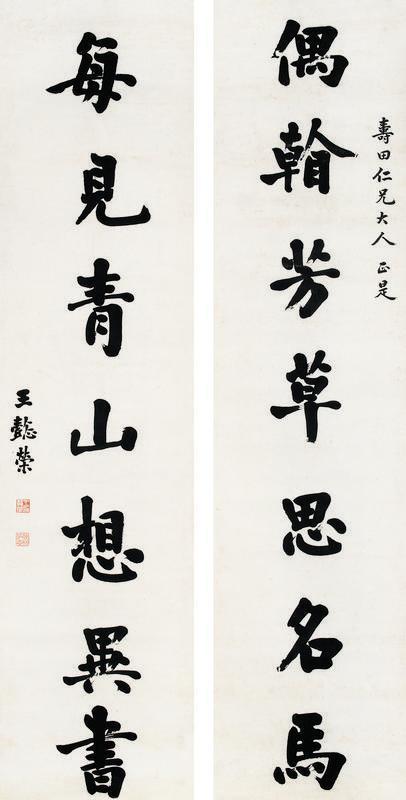 壽田仁兄大人 正是
偶翰芳草思名馬
每見青山想異書
王懿榮